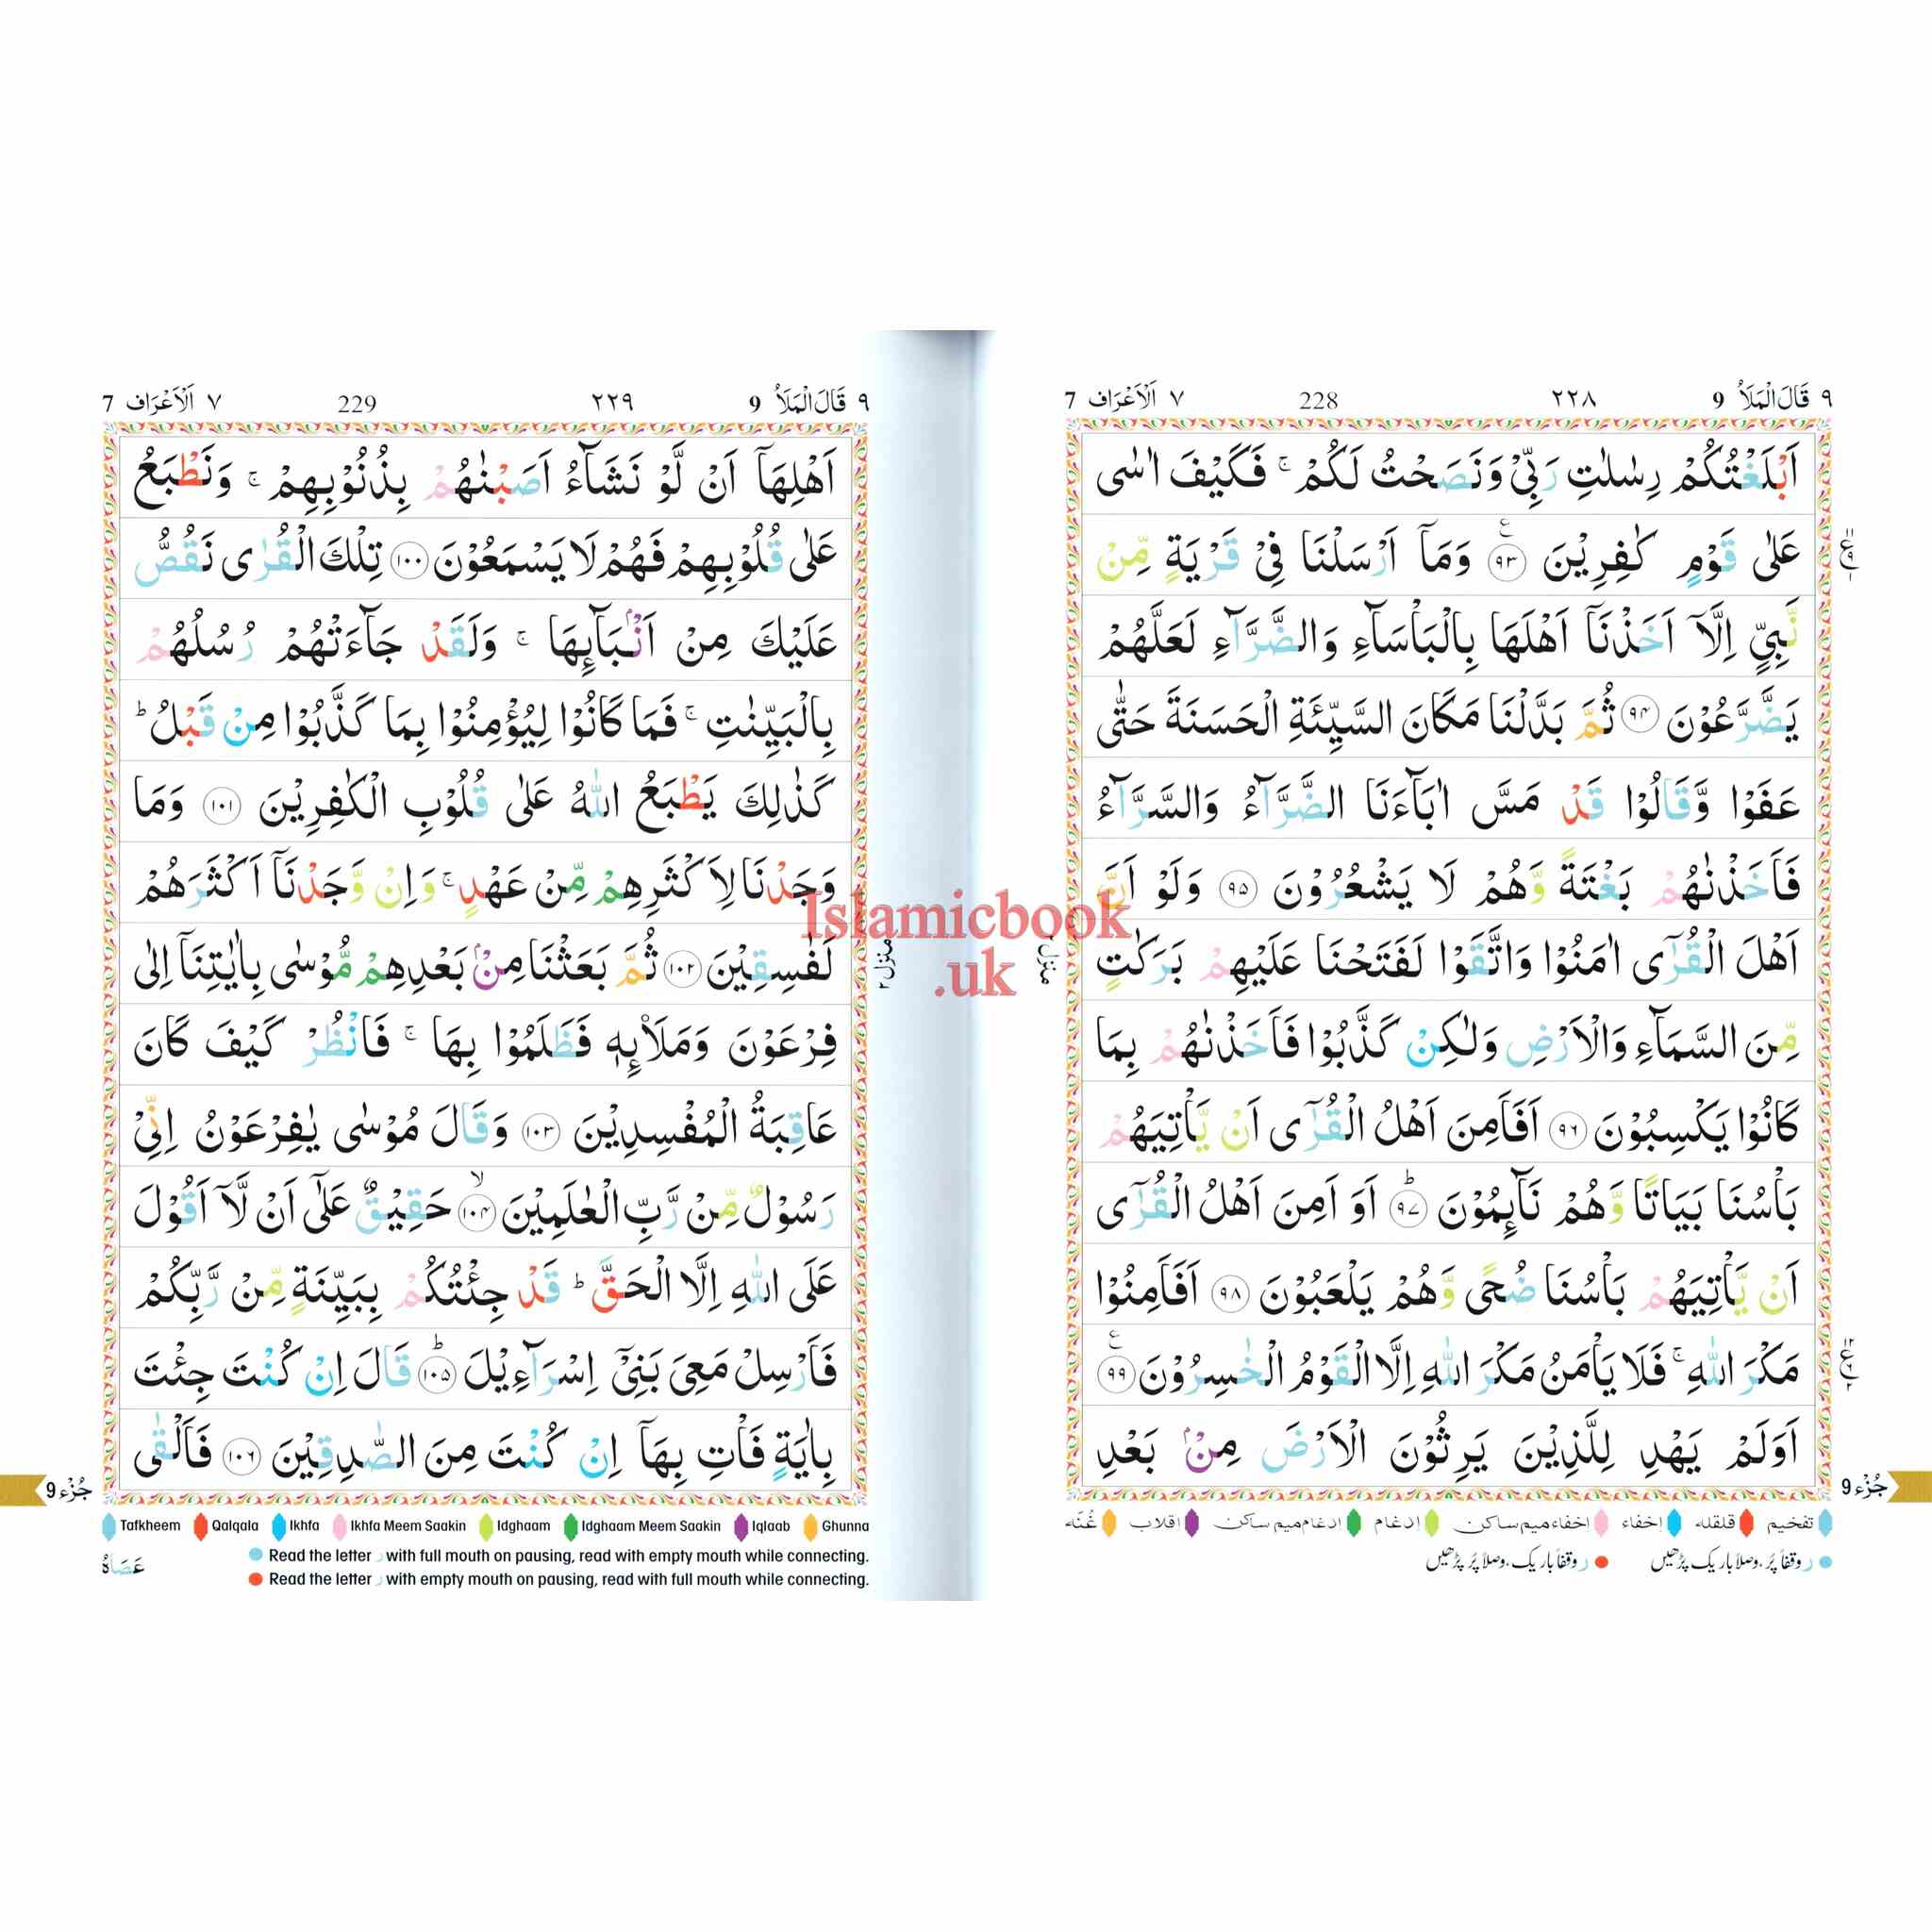 ٩ قَالَ الْمَلَاُ 9 ٢٢٨ 228 ٧ اَلْاَعْرَاف 7
اَبْلَغْتُكُمْ رِسٰلٰتِ رَبِّيْ وَنَصَحْتُ لَكُمْ ۚ فَكَيْفَ اٰسٰى
عَلٰى قَوْمٍ كٰفِرِيْنَ ﴿٩٣﴾ ع وَمَآ اَرْسَلْنَا فِيْ قَرْيَةٍ مِّنْ
نَّبِيٍّ اِلَّآ اَخَذْنَآ اَهْلَهَا بِالْبَاْسَآءِ وَالضَّرَّآءِ لَعَلَّهُمْ
يَضَّرَّعُوْنَ ﴿٩٤﴾ ثُمَّ بَدَّلْنَا مَكَانَ السَّيِّئَةِ الْحَسَنَةَ حَتّٰى
عَفَوْا وَّقَالُوْا قَدْ مَسَّ اٰبَآءَنَا الضَّرَّآءُ وَالسَّرَّآءُ
فَاَخَذْنٰهُمْ بَغْتَةً وَّهُمْ لَا يَشْعُرُوْنَ ﴿٩٥﴾ وَلَوْ اَنَّ
اَهْلَ الْقُرٰٓى اٰمَنُوْا وَاتَّقَوْا لَفَتَحْنَا عَلَيْهِمْ بَرَكٰتٍ
مِّنَ السَّمَآءِ وَالْاَرْضِ وَلٰكِنْ كَذَّبُوْا فَاَخَذْنٰهُمْ بِمَا
كَانُوْا يَكْسِبُوْنَ ﴿٩٦﴾ اَفَاَمِنَ اَهْلُ الْقُرٰٓى اَنْ يَّاْتِيَهُمْ
بَاْسُنَا بَيَاتًا وَّهُمْ نَآئِمُوْنَ ﴿٩٧﴾ ؕ اَوَ اَمِنَ اَهْلُ الْقُرٰٓى
اَنْ يَّاْتِيَهُمْ بَاْسُنَا ضُحًى وَّهُمْ يَلْعَبُوْنَ ﴿٩٨﴾ اَفَاَمِنُوْا
مَكْرَ اللّٰهِ ۚ فَلَا يَاْمَنُ مَكْرَ اللّٰهِ اِلَّا الْقَوْمُ الْخٰسِرُوْنَ ﴿٩٩﴾ ع
اَوَلَمْ يَهْدِ لِلَّذِيْنَ يَرِثُوْنَ الْاَرْضَ مِنْۢ بَعْدِ
جُزْء 9
منزل ٢
تفخیم قلقله اِخفاء اِخفاء میم ساکن اِدغام اِدغام میم ساکن اِقلاب غُنّه
ر وقفاً پُر، وصلاً باریک پڑھیں ر وقفاً باریک، وصلاً پُر پڑھیں
٩ قَالَ الْمَلَاُ 9 ٢٢٩ 229 ٧ اَلْاَعْرَاف 7
اَهْلِهَآ اَنْ لَّوْ نَشَآءُ اَصَبْنٰهُمْ بِذُنُوْبِهِمْ ۚ وَنَطْبَعُ
عَلٰى قُلُوْبِهِمْ فَهُمْ لَا يَسْمَعُوْنَ ﴿١٠٠﴾ تِلْكَ الْقُرٰى نَقُصُّ
عَلَيْكَ مِنْ اَنْۢبَآئِهَا ۚ وَلَقَدْ جَآءَتْهُمْ رُسُلُهُمْ
بِالْبَيِّنٰتِ ۚ فَمَا كَانُوْا لِيُؤْمِنُوْا بِمَا كَذَّبُوْا مِنْ قَبْلُ ؕ
كَذٰلِكَ يَطْبَعُ اللّٰهُ عَلٰى قُلُوْبِ الْكٰفِرِيْنَ ﴿١٠١﴾ وَمَا
وَجَدْنَا لِاَكْثَرِهِمْ مِّنْ عَهْدٍ ۚ وَاِنْ وَّجَدْنَآ اَكْثَرَهُمْ
لَفٰسِقِيْنَ ﴿١٠٢﴾ ثُمَّ بَعَثْنَا مِنْۢ بَعْدِهِمْ مُّوْسٰى بِاٰيٰتِنَآ اِلٰى
فِرْعَوْنَ وَمَلَا۟ئِهٖ فَظَلَمُوْا بِهَا ۚ فَانْظُرْ كَيْفَ كَانَ
عَاقِبَةُ الْمُفْسِدِيْنَ ﴿١٠٣﴾ وَقَالَ مُوْسٰى يٰفِرْعَوْنُ اِنِّيْ
رَسُوْلٌ مِّنْ رَّبِّ الْعٰلَمِيْنَ ﴿١٠٤﴾ ۙ حَقِيْقٌ عَلٰٓى اَنْ لَّآ اَقُوْلَ
عَلَى اللّٰهِ اِلَّا الْحَقَّ ؕ قَدْ جِئْتُكُمْ بِبَيِّنَةٍ مِّنْ رَّبِّكُمْ
فَاَرْسِلْ مَعِيَ بَنِيْٓ اِسْرَآءِيْلَ ﴿١٠٥﴾ ؕ قَالَ اِنْ كُنْتَ جِئْتَ
بِاٰيَةٍ فَاْتِ بِهَآ اِنْ كُنْتَ مِنَ الصّٰدِقِيْنَ ﴿١٠٦﴾ فَاَلْقٰى
جُزْء 9
منزل ٢
Tafkheem Qalqala Ikhfa Ikhfa Meem Saakin Idghaam Idghaam Meem Saakin Iqlaab Ghunna
Read the letter ر with full mouth on pausing, read with empty mouth while connecting.
عَصَاهُ
Read the letter ر with empty mouth on pausing, read with full mouth while connecting.
Islamicbook
.uk